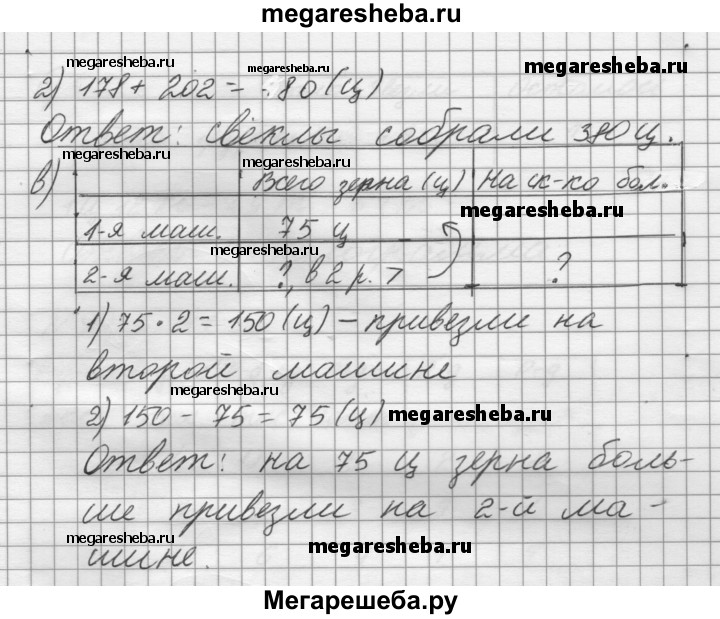 megaresheba.ru
megaresheba.ru
2) 178 + 202 = 80 (ц) megaresheba.ru megaresheba.ru
Ответ: свёклы собрали 380 ц.
megaresheba.ru megaresheba.ru
в) Всего зерна (ц) На ск-ко бол.
megaresheba.ru
1-я маш. 75 ц
megaresheba.ru
2-я маш. ?, в 2 р. > ?
1) 75 · 2 = 150 (ц) – привезли на
второй машине
megaresheba.ru
2) 150 – 75 = 75 (ц) megaresheba.ru
Ответ: на 75 ц зерна боль-
ше привезли на 2-й ма-
megaresheba.ru megaresheba.ru
шине.
Мегарешеба.ру